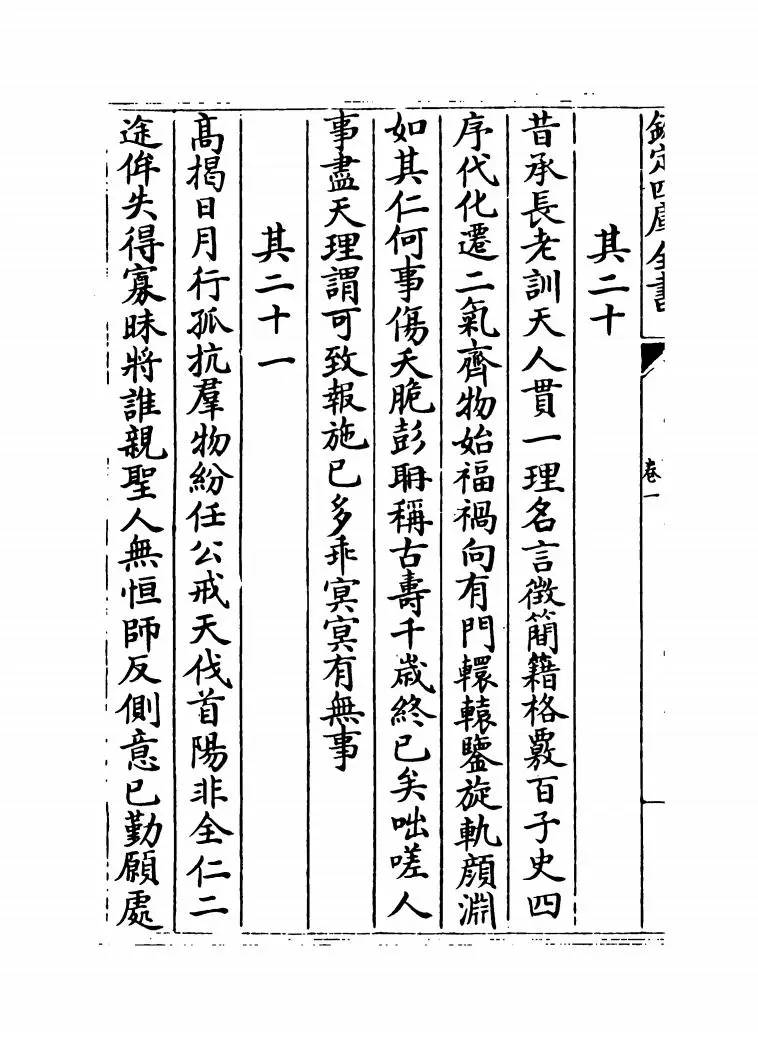 欽定四庫全書
卷一
其二十
昔承長老訓天人貫一理名言徴簡籍格覈百子史四
序代化遷二氣齊物始福禍向有門轘轅鑒旋軌顔淵
如其仁何事傷夭脆彭聃稱古壽千歳終已矣咄嗟人
事盡天理謂可致報施已多乖冥冥有無事
其二十一
髙揭日月行孤抗羣物紛任公戒天伐首陽非全仁二
途侔失得寡昧將誰親聖人無恒師反側意已勤願處